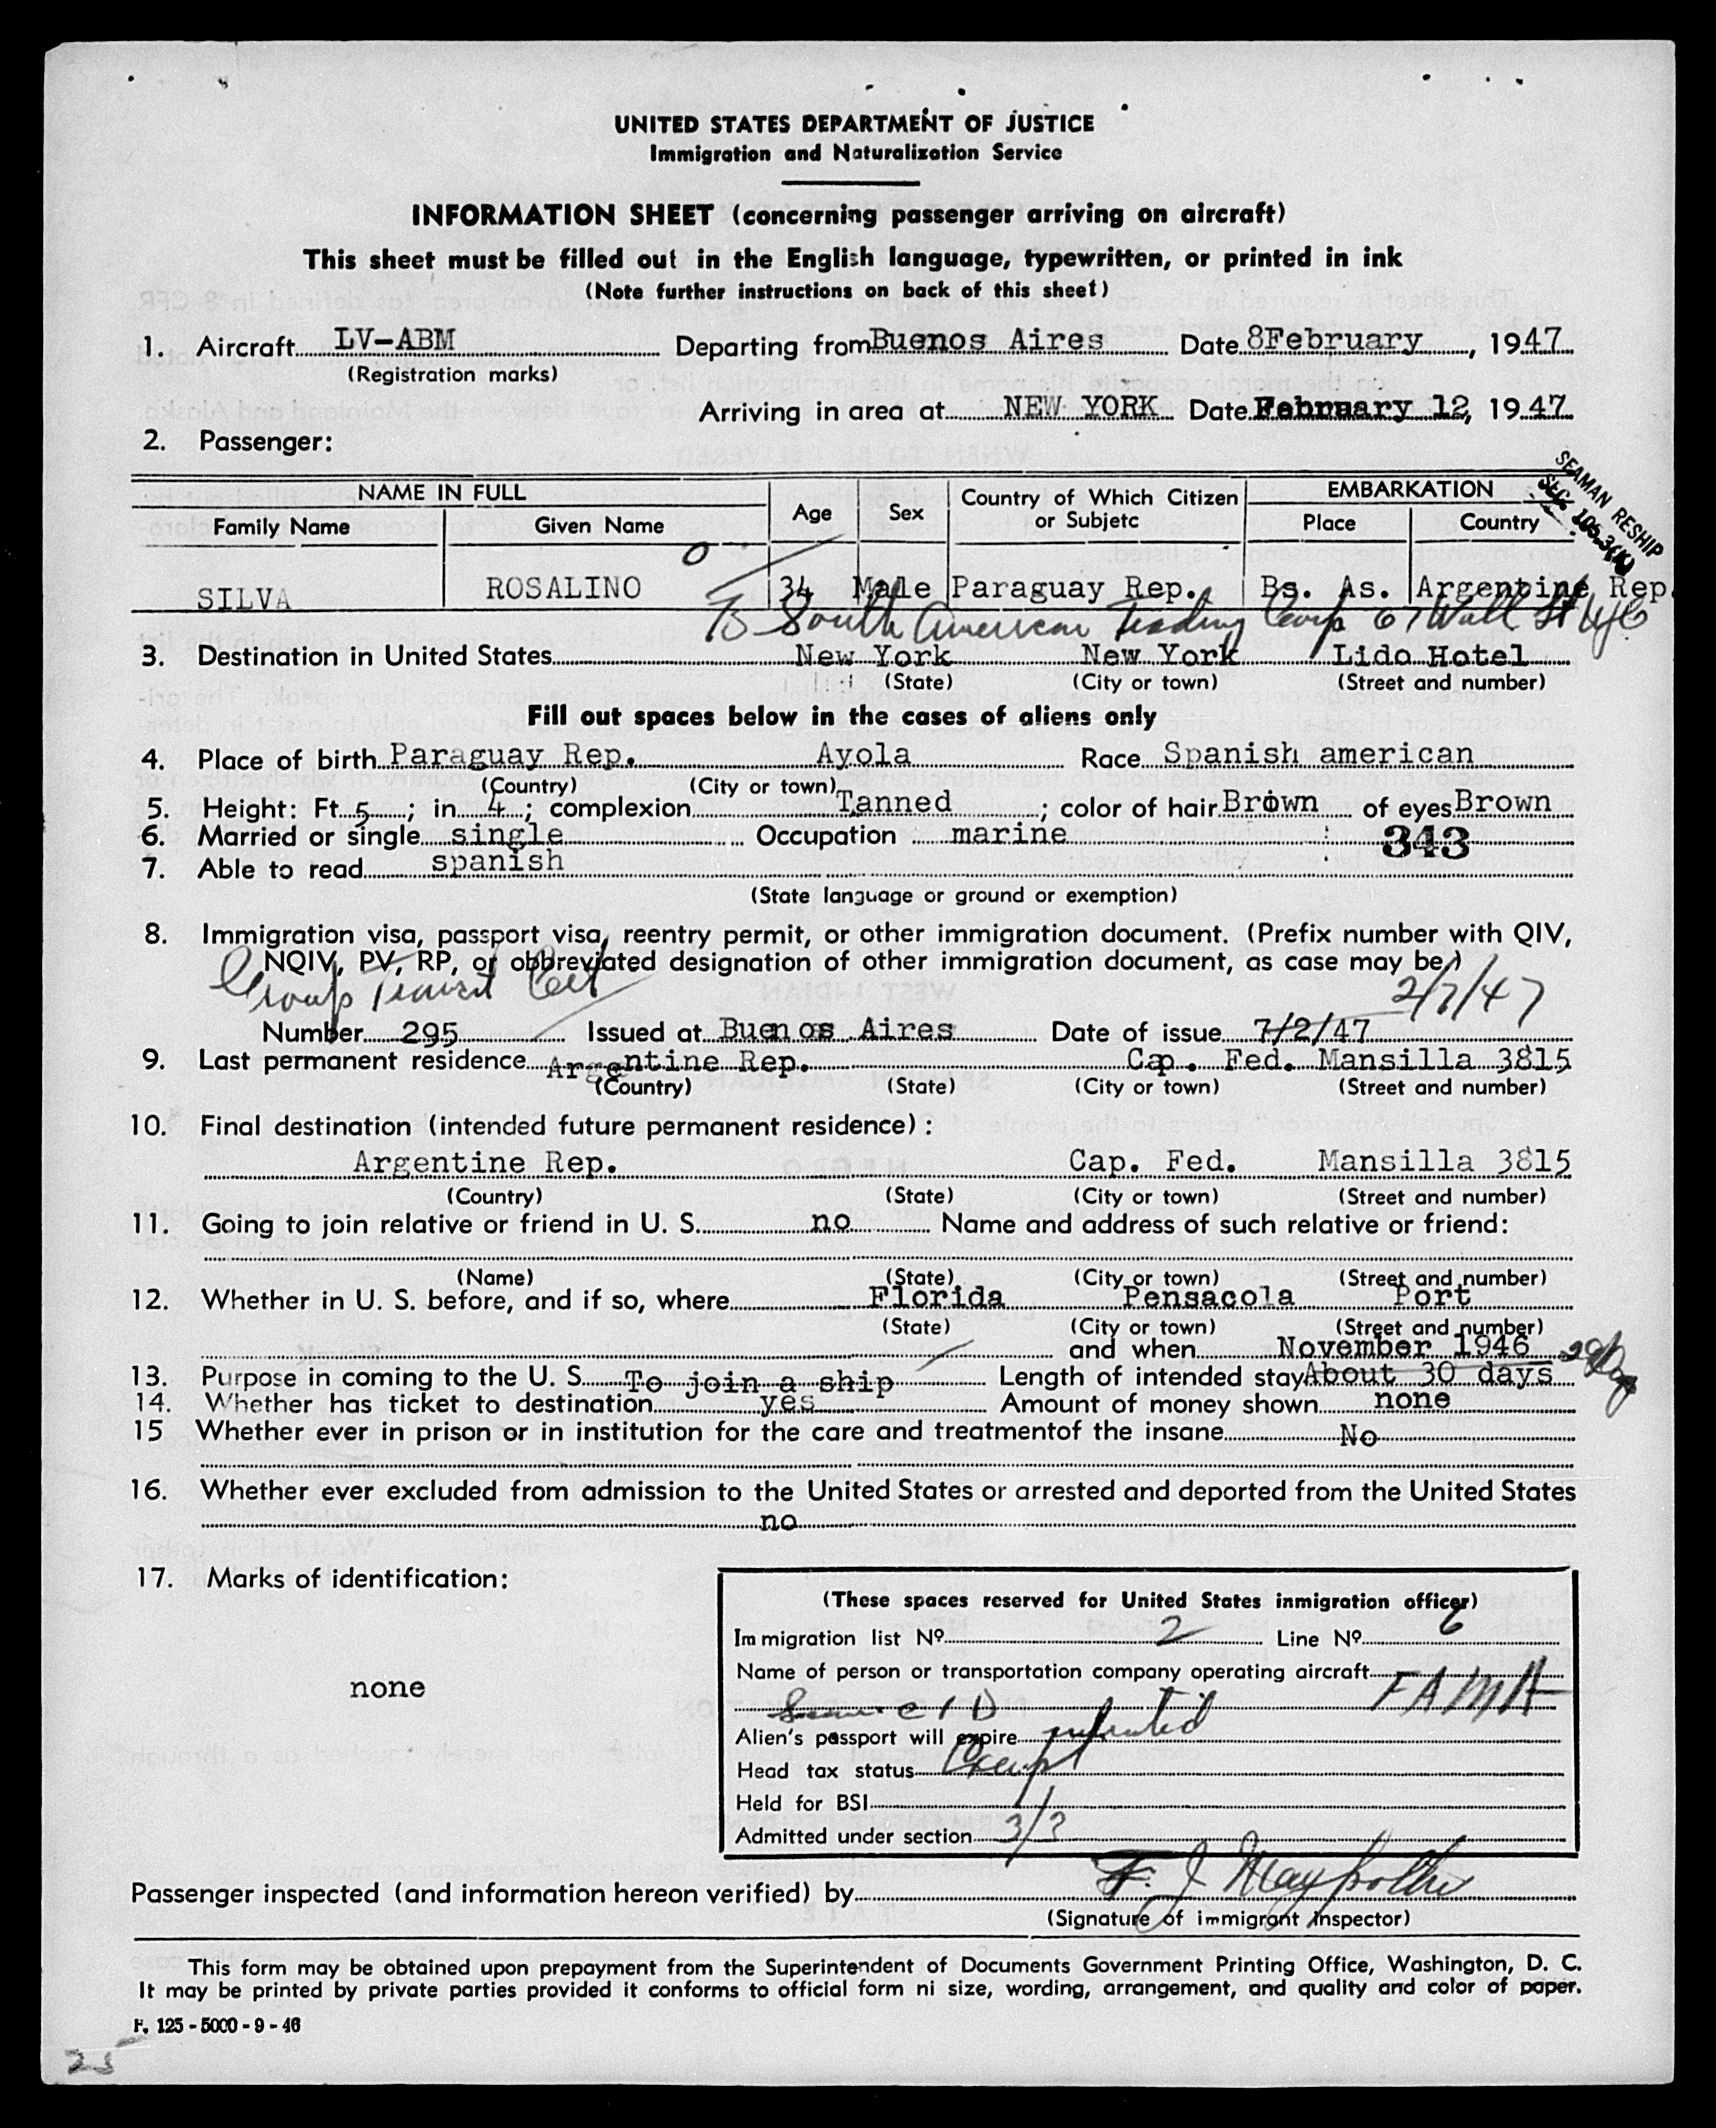 UNITED STATES DEPARTMENT OF JUSTICE
Immigration and Naturalization Service
INFORMATION SHEET (concerning passenger arriving on aircraft)
This sheet must be filled out in the English language, typewritten, or printed in ink
(Note further instructions on back of this sheet)
1. Aircraft LV-ABM Departing from Buenos Aires Date 8February, 1947
(Registration marks)
Arriving in area at NEW YORK Date February 12, 1947
2. Passenger:
SEAMAN RESHIP
SEC 105.3(K)
NAME IN FULL Age Sex Country of Which Citizen or Subjetc EMBARKATION
Family Name Given Name Place Country
O
SILVA ROSALINO 34 Male Paraguay Rep. Bs. As. Argentine Rep.
To South American Trading Corp 67 Wall St NYC
3. Destination in United States New York New York Lido Hotel
(State) (City or town) (Street and number)
Fill out spaces below in the cases of aliens only
4. Place of birth Paraguay Rep. Ayola Race Spanish american
(Country) (City or town)
5. Height: Ft. 5; in. 4; complexion Tanned; color of hair Brown of eyes Brown
6. Married or single single Occupation marine 343
7. Able to read spanish
(State language or ground or exemption)
8. Immigration visa, passport visa, reentry permit, or other immigration document. (Prefix number with QIV,
NQIV, PV, RP, or obbreviated designation of other immigration document, as case may be)
Group Transit Cert 2/7/47
Number 295 Issued at Buenos Aires Date of issue 7/2/47
9. Last permanent residence Argentine Rep. Cap. Fed. Mansilla 3815
(Country) (State) (City or town) (Street and number)
10. Final destination (intended future permanent residence):
Argentine Rep. Cap. Fed. Mansilla 3815
(Country) (State) (City or town) (Street and number)
11. Going to join relative or friend in U. S. no Name and address of such relative or friend:
(Name) (State) (City or town) (Street and number)
12. Whether in U. S. before, and if so, where Florida Pensacola Port
(State) (City or town) (Street and number)
and when November 1946
13. Purpose in coming to the U. S. To join a ship Length of intended stay About 30 days
14. Whether has ticket to destination yes Amount of money shown none
15 Whether ever in prison or in institution for the care and treatmentof the insane No
16. Whether ever excluded from admission to the United States or arrested and deported from the United States
no
17. Marks of identification:
none
(These spaces reserved for United States inmigration officer)
Immigration list Nº 2 Line Nº 6
Name of person or transportation company operating aircraft FAMA
C I D
Alien's passport will expire
Head tax status Exempt
Held for BSI
Admitted under section 3/3
Passenger inspected (and information hereon verified) by F. J
(Signature of immigrant inspector)
This form may be obtained upon prepayment from the Superintendent of Documents Government Printing Office, Washington, D. C.
It may be printed by private parties provided it conforms to official form ni size, wording, arrangement, and quality and color of paper.
F. 125 - 5000 - 9 - 46
25